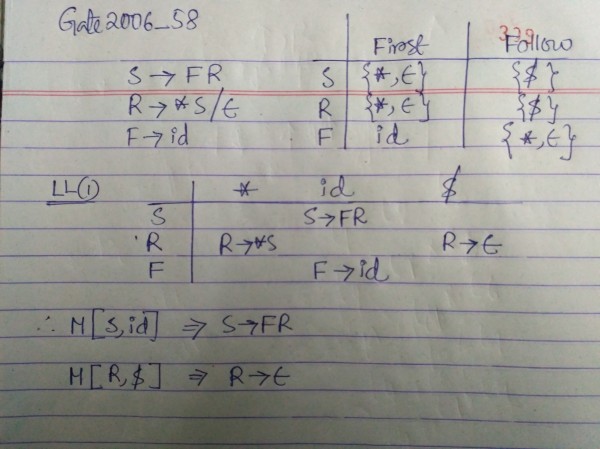 Gate 2006_58
329
First Follow
S → FR S {*, ϵ} {$}
R → *S/ϵ R {*, ϵ} {$}
F → id F id {*, ϵ}
LL(1) * id $
S S→FR
R R→*S R→ϵ
F F→id
∴ M[S,id] ⇒ S→FR
M[R,$] ⇒ R→ϵ